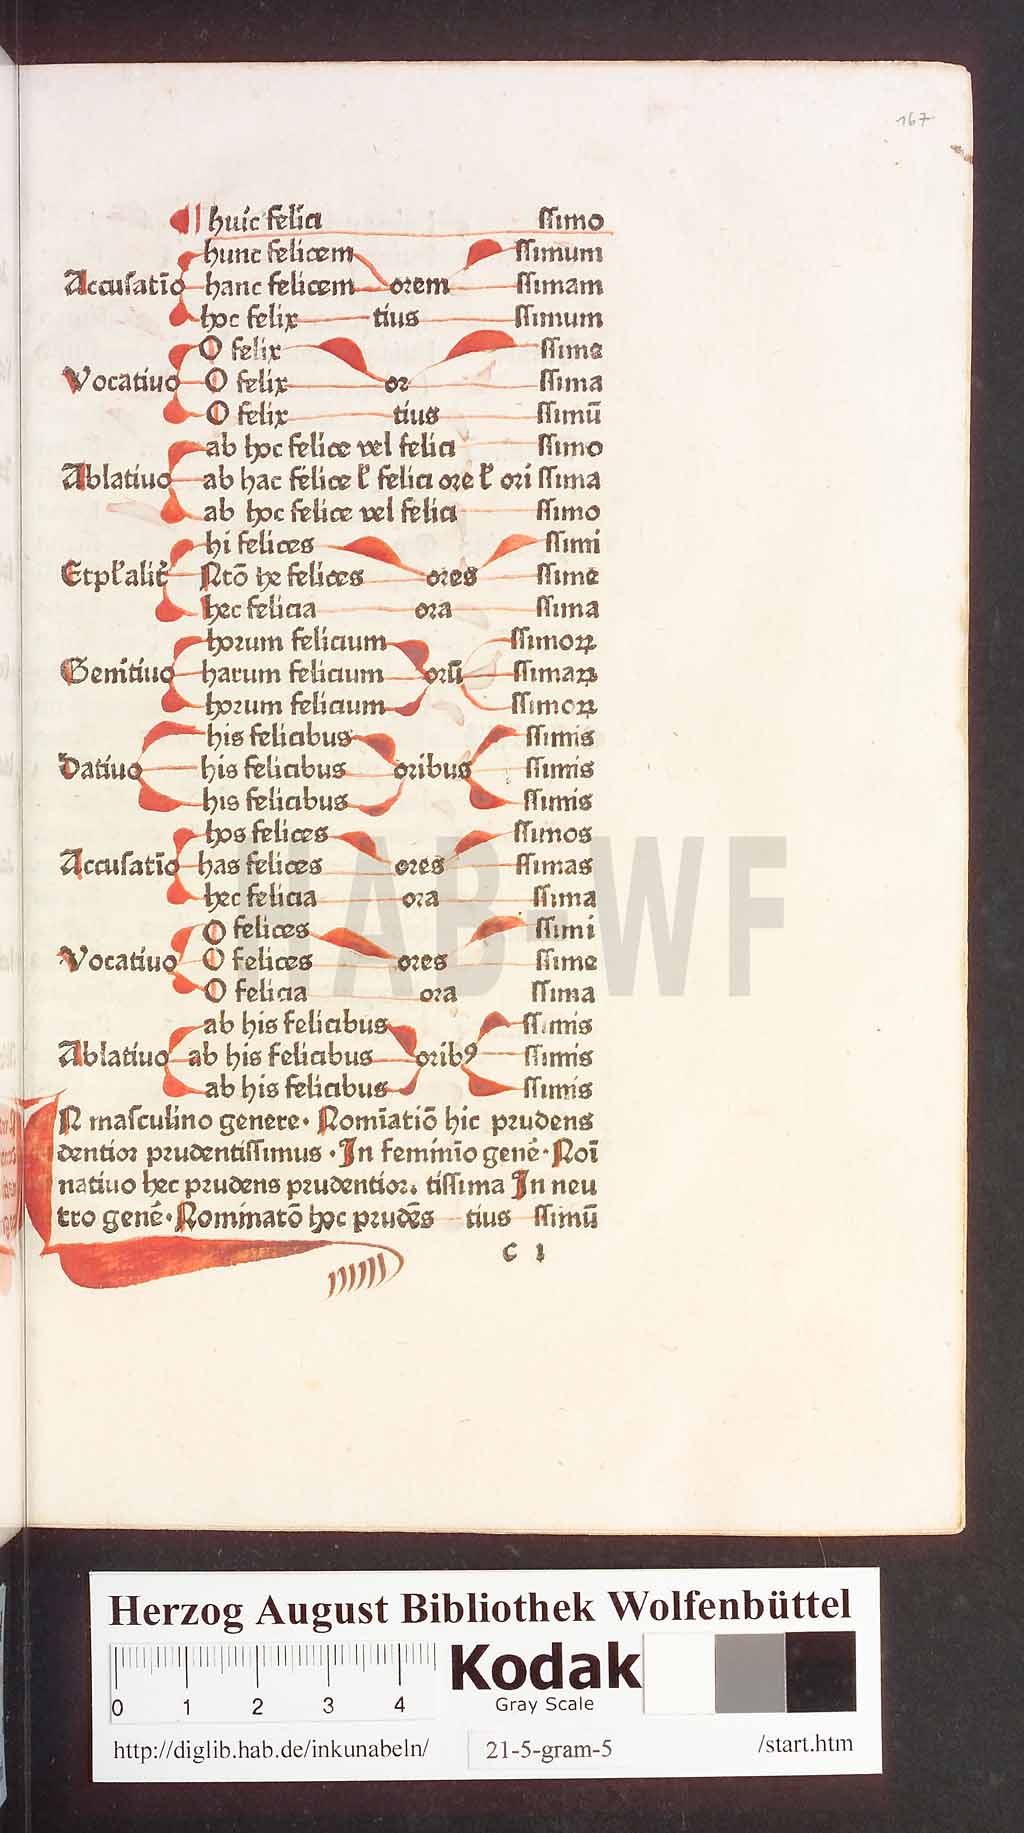 167
huic felici ssimo
hunc felicem ssimum
Accusatīo hanc felicem orem ssimam
hoc felix tius ssimum
O felix ssime
Vocatiuo O felix or ssima
O felix tius ssimū
ab hoc felice vel felici ssimo
Ablatiuo ab hac felice ƚ felici ore ƚ ori ssima
ab hoc felice vel felici ssimo
hi felices ssimi
Etpƚalit̉ Ntō he felices ores ssime
hec felicia ora ssima
horum felicium ssimoꝝ
Genītiuo harum felicium orū ssimaꝝ
horum felicium ssimoꝝ
his felicibus ssimis
Datiuo his felicibus oribus ssimis
his felicibus ssimis
hos felices ssimos
Accusatīo has felices ores ssimas
hec felicia ora ssima
O felices ssimi
Vocatiuo O felices ores ssime
O felicia ora ssima
ab his felicibus ssimis
Ablatiuo ab his felicibus oribꝰ ssimis
ab his felicibus ssimis
IN masculino genere· Nomīatiō hic prudens
dentior prudentissimus ·In feminīo genē·Noī
natiuo hec prudens prudentior. tissima In neu
tro genē·Nominatō hoc prudēs tius ssimū
c i
HAB-WF
Herzog August Bibliothek Wolfenbüttel
0 1 2 3 4
Kodak
Gray Scale
http://diglib.hab.de/inkunabeln/ 21-5-gram-5 /start.htm